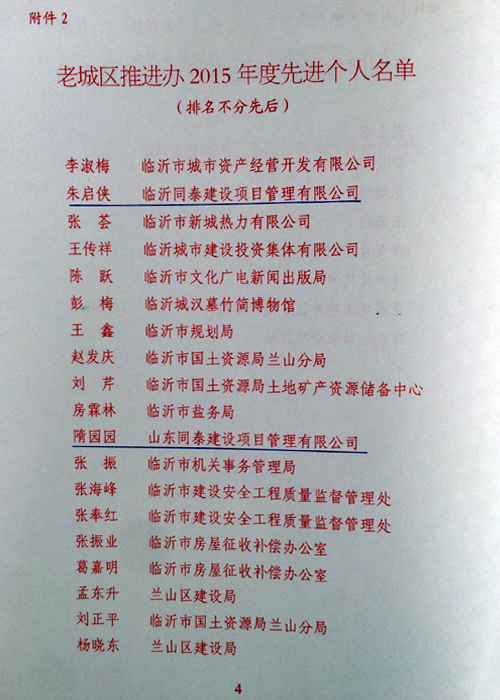 附件2
老城区推进办2015年度先进个人名单
(排名不分先后)
李淑梅 临沂市城市资产经营开发有限公司
朱启侠 临沂同泰建设项目管理有限公司
张 荟 临沂市新城热力有限公司
王传祥 临沂城市建设投资集体有限公司
陈 跃 临沂市文化广电新闻出版局
彭 梅 临沂城汉墓竹简博物馆
王 鑫 临沂市规划局
赵发庆 临沂市国土资源局兰山分局
刘 芹 临沂市国土资源局土地矿产资源储备中心
房霖林 临沂市盐务局
隋园园 山东同泰建设项目管理有限公司
张 振 临沂市机关事务管理局
张海峰 临沂市建设安全工程质量监督管理处
张奉红 临沂市建设安全工程质量监督管理处
张振业 临沂市房屋征收补偿办公室
葛嘉明 临沂市房屋征收补偿办公室
孟东升 兰山区建设局
刘正平 临沂市国土资源局兰山分局
杨晓东 兰山区建设局
4